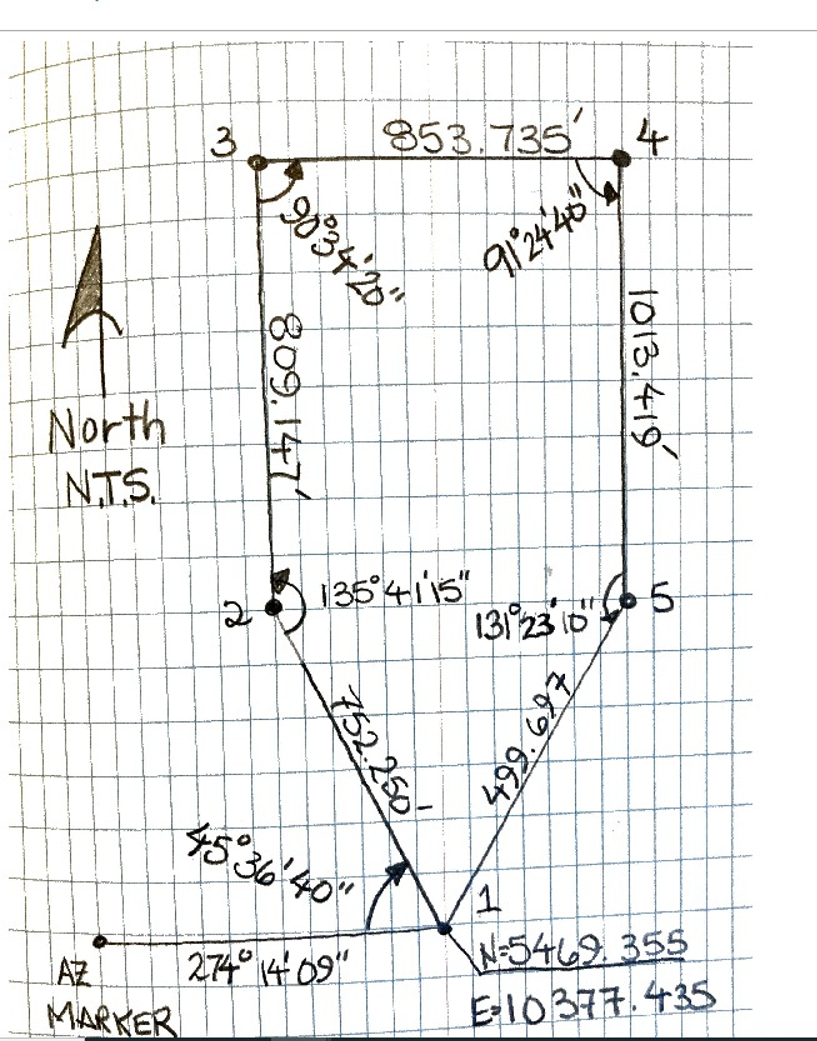 853.735'
3
4
90°34'20"
91°24'40"
809.147'
1013.419'
North
N.T.S.
135°41'15"
2
131°23'10"
5
752.250
499.697
45°36'40"
1
274°14'09"
N=5469.355
AZ
MARKER
E=10377.435